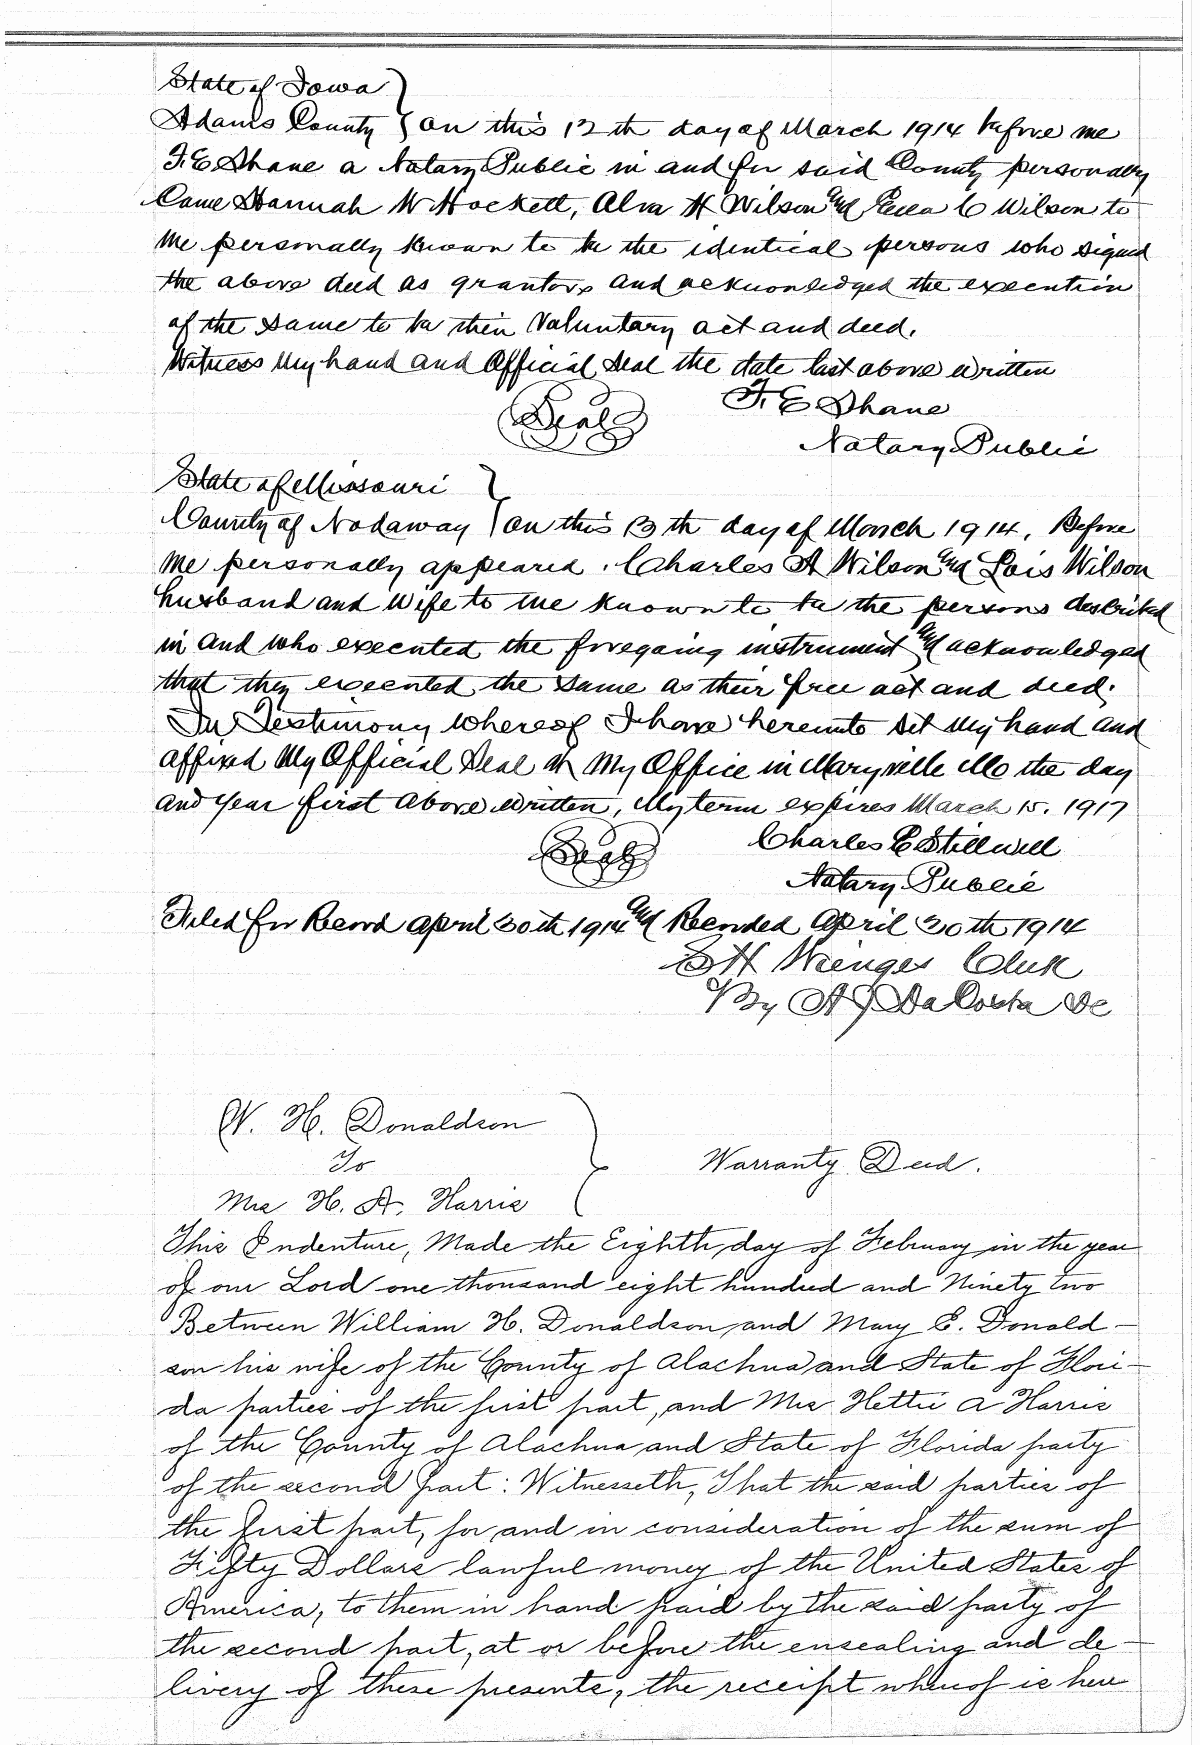 State of Iowa }
Adams County } On this 12th day of March 1914 before me
F. E. Shane a Notary Public in and for said County personally
Came Hannah W Hockett, Alva H Wilson and C Wilson to
me personally known to be the identical persons who signed
the above deed as grantors and acknowledged the execution
of the same to be their Voluntary act and deed.
Witness my hand and Official Seal the date last above written
(Seal) F. E. Shane
Notary Public
State of Missouri }
County of Nodaway } On this 13th day of March 1914, Before
me personally appeared. Charles A Wilson and Lois Wilson
husband and wife to me known to be the persons described
in and who executed the foregoing instrument, and acknowledged
that they executed the same as their free act and deed.
In Testimony whereof I have hereunto set my hand and
affixed My Official Seal at My Office in Maryville Mo the day
and year first above written, My term expires March 15. 1917
(Seal) Charles E Stillwell
Notary Public
Filed for Record April 30th 1914 and Recorded April 30th 1914
S H Wienges Clerk
By A J DaCosta DC
W. H. Donaldson
To } Warranty Deed.
Mrs H. A. Harris
This Indenture, Made the Eighth day of February in the year
of our Lord one thousand eight hundred and Ninety two
Between William H. Donaldson and Mary E. Donald-
son his wife of the County of Alachua and State of Flori-
da parties of the first part, and Mrs Hettie A Harris
of the County of Alachua and State of Florida party
of the second part: Witnesseth, That the said parties of
the first part, for and in consideration of the sum of
Fifty Dollars lawful money of the United States of
America, to them in hand paid by the said party of
the second part, at or before the ensealing and de-
livery of these presents, the receipt whereof is here